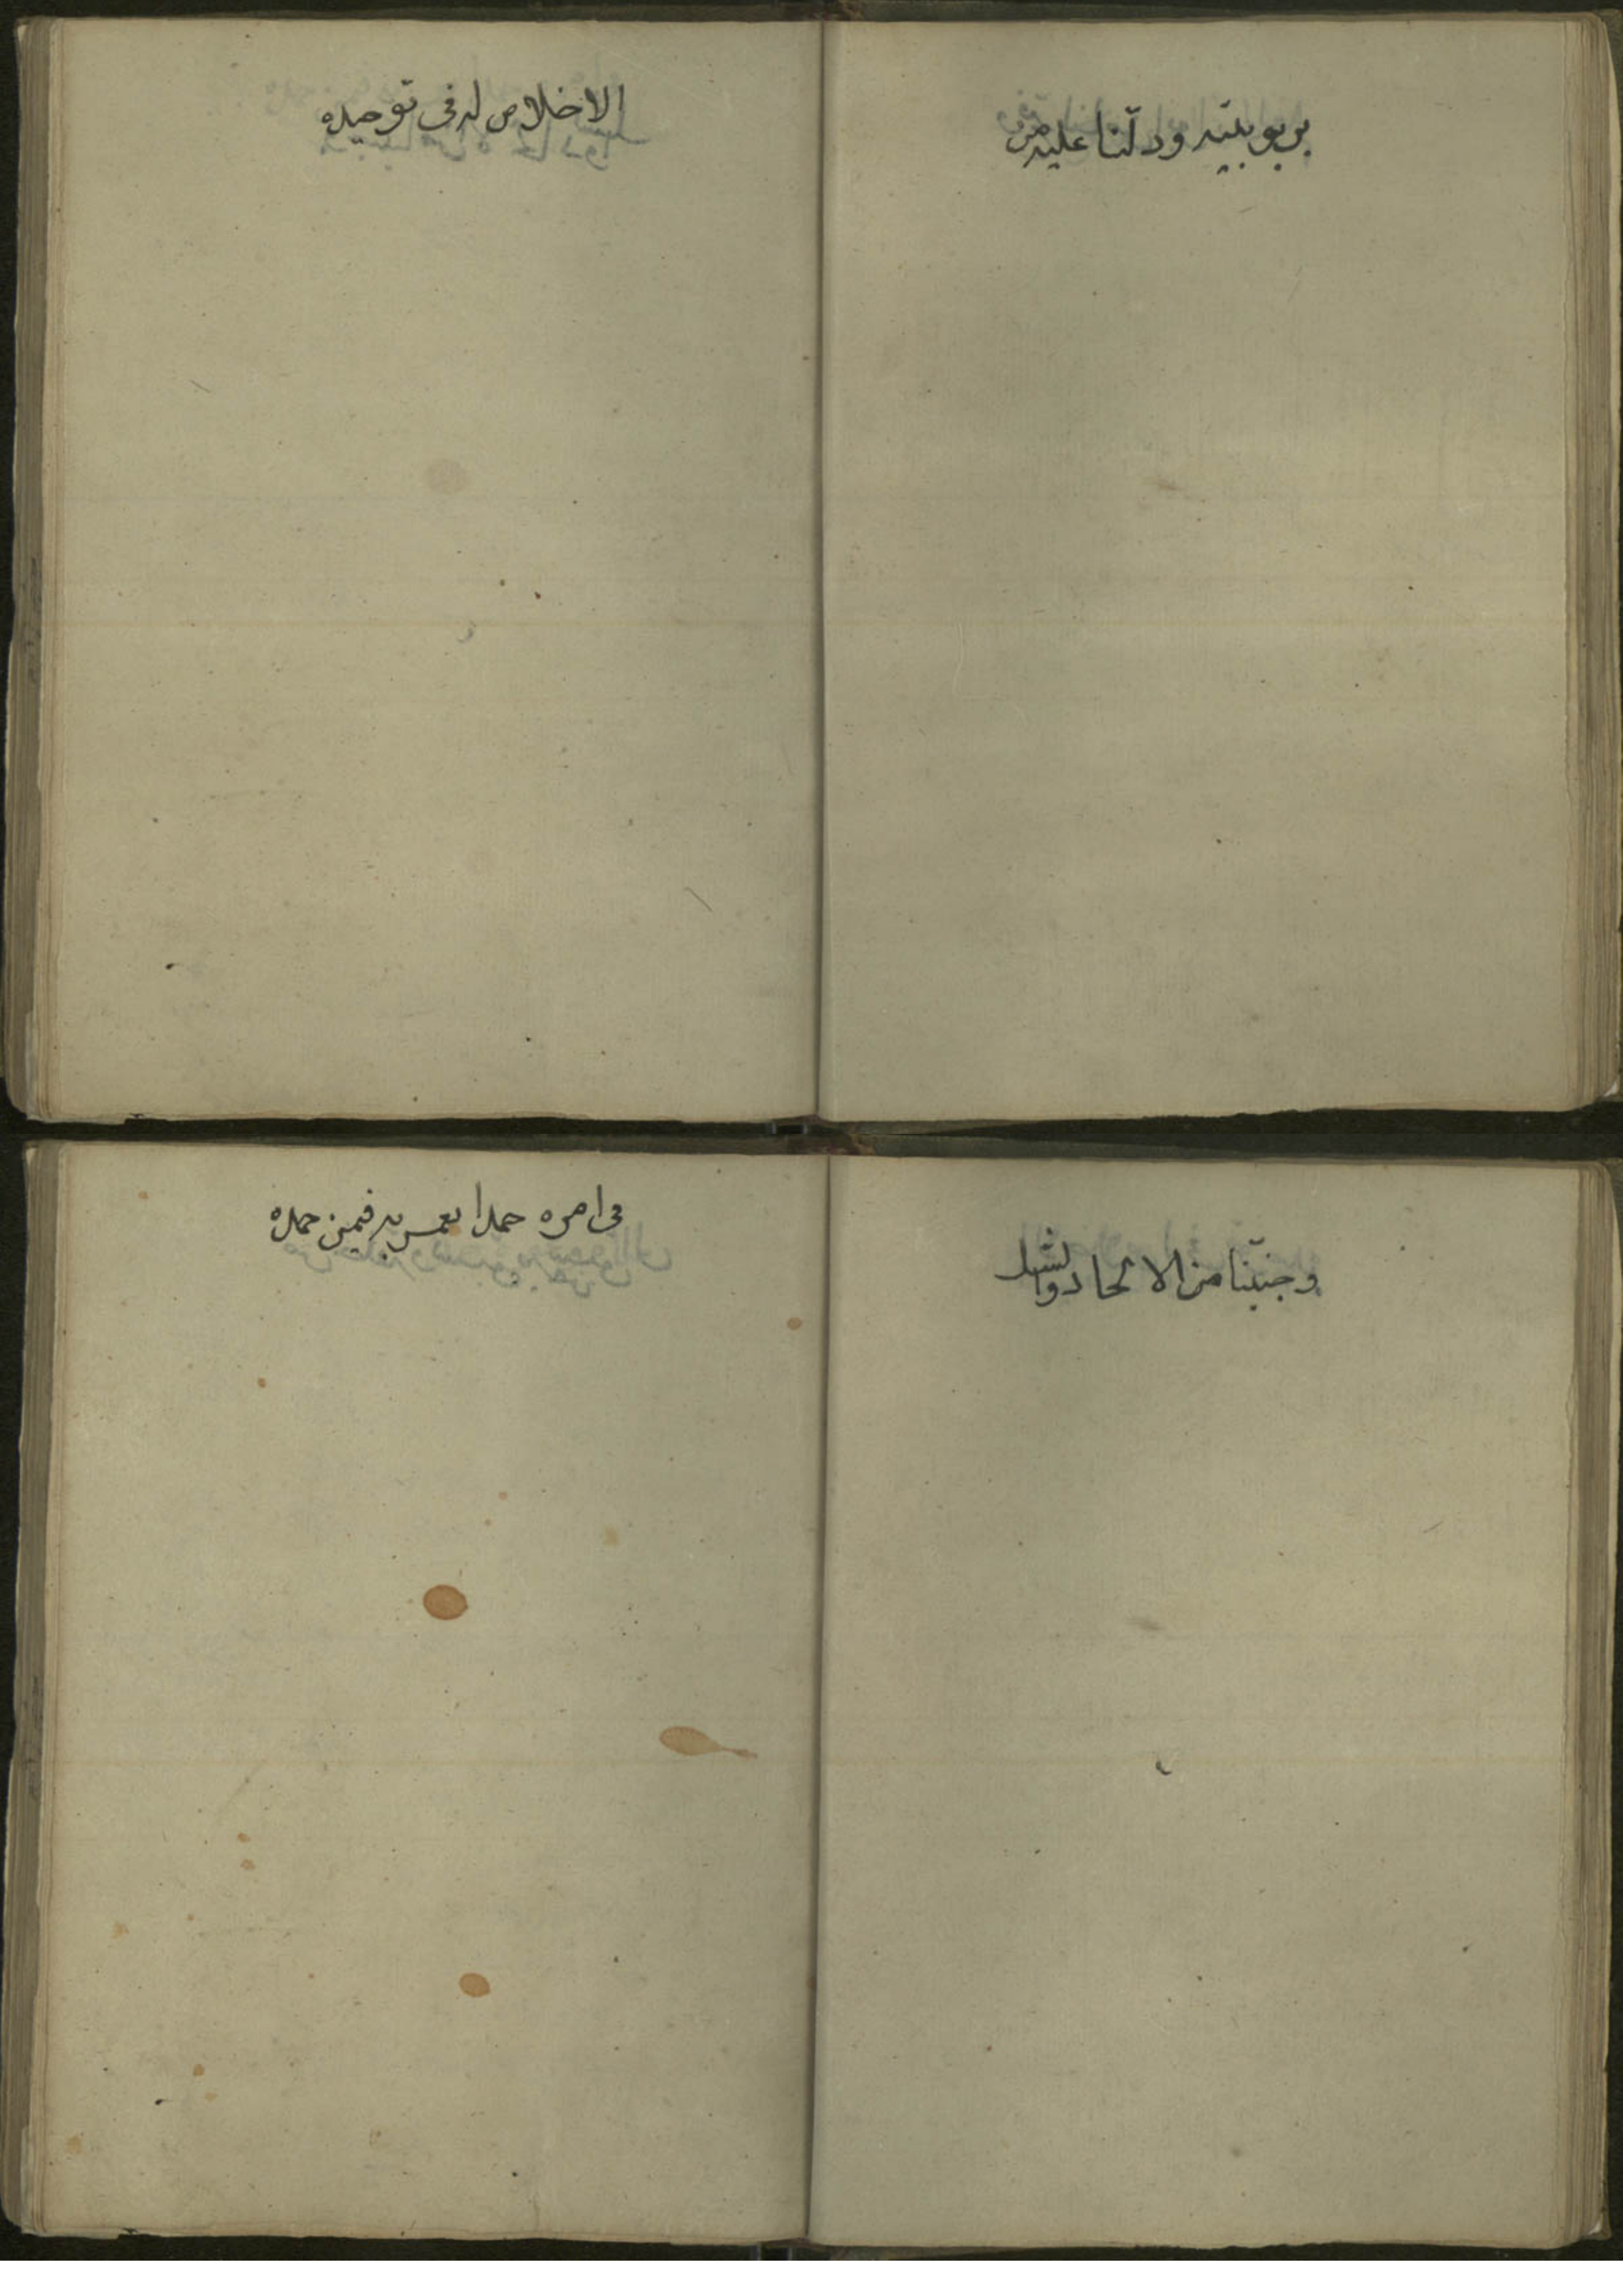 بربوبيته ودلّنا عليه من
الاخلاص له فى توحيده
وجنبّنا من الالحاد والشك
فى امره حمدا نعمر به فيمن حمده